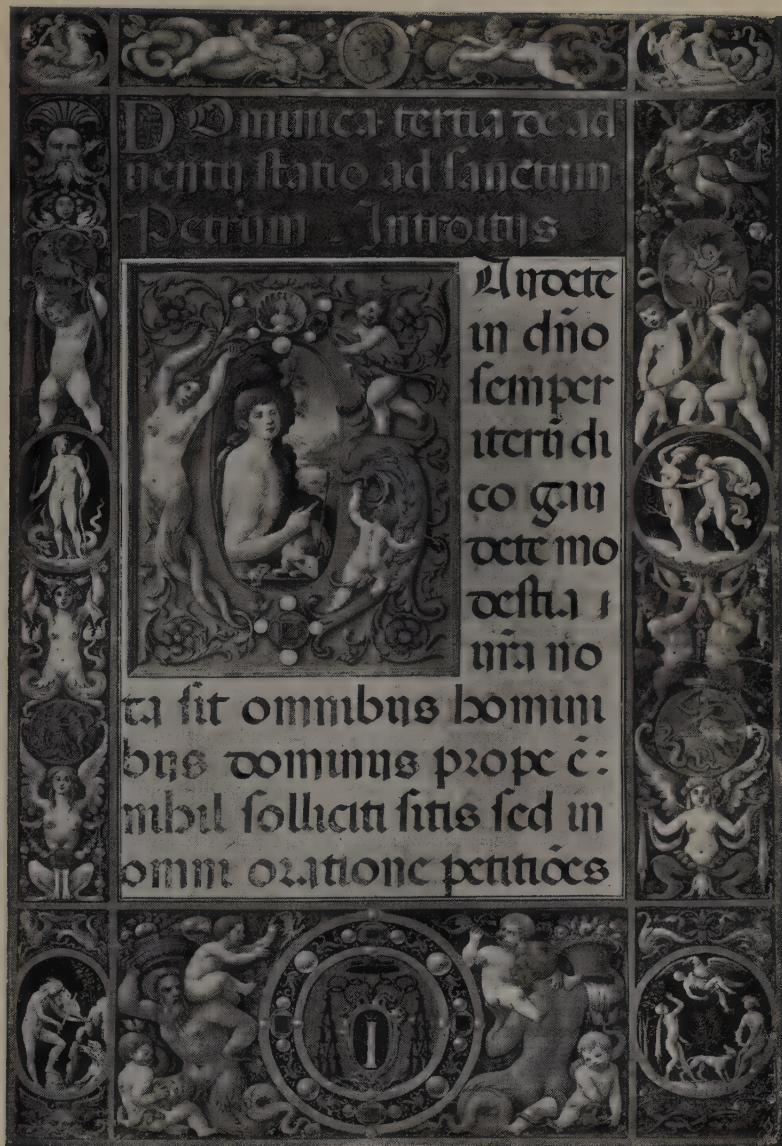 DOminica tertia de ad
uentu statio ad sanctum
Petrum . Introitus
GAudete
in dño
semper
iterũ di
co gau
dete mo
destia
ur̃a no
ta sit omnibus homini
bus dominus prope ẽ:
nihil solliciti sitis sed in
omni oratione petitiões